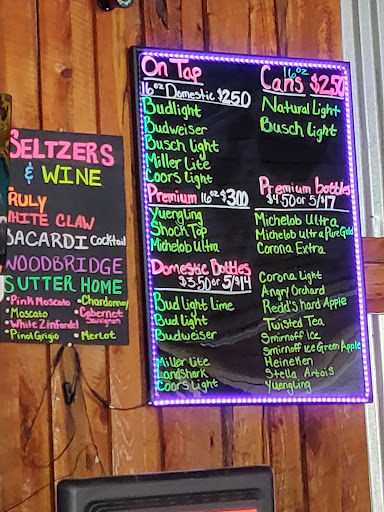 SELTZERS
& WINE
TRULY
WHITE CLAW
BACARDI Cocktail
WOODBRIDGE
SUTTER HOME
• Pink Moscato
• Moscato
• White Zinfandel
• Pinot Grigio
• Chardonnay
• Cabernet Sauvignon
• Merlot
On Tap
16oz Domestic $2.50
Budlight
Budweiser
Busch light
Miller Lite
Coors Light
Premium 16oz $3.00
Yuengling
Shock Top
Michelob Ultra
Domestic Bottles
$3.50 or 5/$14
Bud Light Lime
Bud Light
Budweiser
Miller Lite
Landshark
Coors Light
16oz
Cans $2.50
Natural Light
Busch Light
Premium bottles
$4.50 or 5/$17
Michelob Ultra
Michelob Ultra Pure Gold
Corona Extra
Corona Light
Angry Orchard
Redd's hard Apple
Twisted Tea
Smirnoff Ice
Smirnoff Ice Green Apple
Heineken
Stella Artois
Yuengling